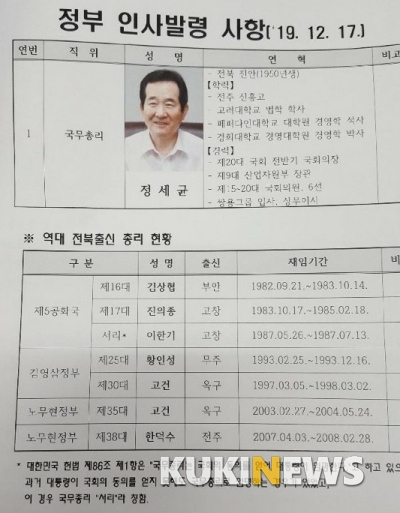 정부 인사발령 사항('19. 12. 17.)
연번 직 위 성 명 연 혁 비고
1 국무총리 정 세 균
- 전북 진안(1950년생)
【학력】
- 전주 신흥고
고려대학교 법학 학사
- 페퍼다인대학교 대학원 경영학 석사
- 경희대학교 경영대학원 경영학 박사
【경력】
- 제20대 국회 전반기 국회의장
- 제9대 산업자원부 장관
- 제15~20대 국회의원, 6선
- 쌍용그룹 입사, 상무이사
※ 역대 전북출신 총리 현황
구 분 성 명 출신 재임기간
제5공화국 제16대 김상협 부안 1982.09.21.~1983.10.14.
제17대 진의종 고창 1983.10.17.~1985.02.18.
서리* 이한기 고창 1987.05.26.~1987.07.13.
김영삼정부 제25대 황인성 무주 1993.02.25.~1993.12.16.
제30대 고건 옥구 1997.03.05.~1998.03.02.
노무현정부 제35대 고건 옥구 2003.02.27.~2004.05.24.
노무현정부 제38대 한덕수 전주 2007.04.03.~2008.02.28.
* 대한민국 헌법 제86조 제1항은 "국무총리는 국회의 하고 있으
과거 대통령이 국회의 동의를 얻지
이 경우 국무총리 '서리'라 칭함.
KUKINEWS